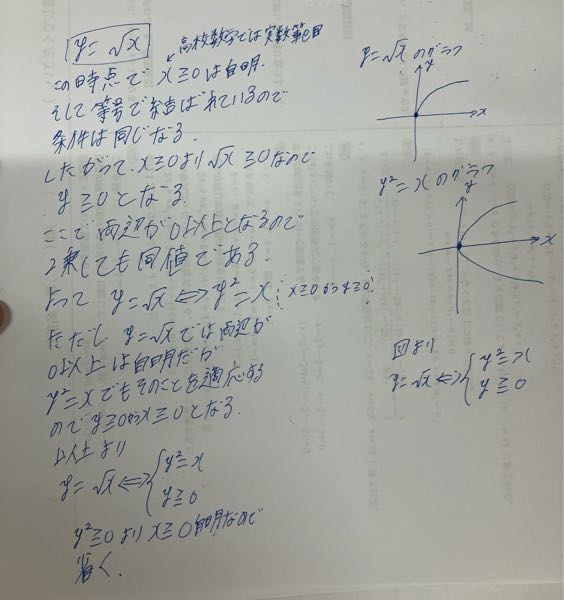 y=√x
高校数学では実数範囲
この時点で x≧0は自明.
そして等号で結ばれているので
条件は同じなる.
したがって. x≧0より √x≧0なので
y≧0となる.
ここで両辺が0以上となるので
2乗しても同値である.
よって y=√x⇔y²=x (x≧0かつy≧0)
ただし y=√xでは両辺が
0以上は自明だが
y²=xでもそのことを適応する
ので y≧0かつx≧0となる.
以上より
y=√x⇔{y²=x
y≧0
y²≧0より x≧0自明なので
省く.
y=√xのグラフ
y
x
y²=xのグラフ
y
x
図より
y=√x⇔{y²=x
y≧0